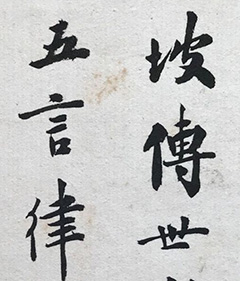 坡傳世
五言律